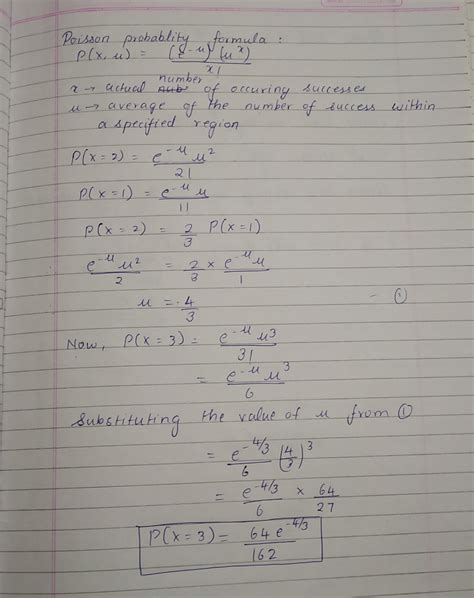 Poisson probablity formula :
P(x, μ) = (e^-μ) (μ^x) / x!
x → actual number of occuring successes
μ → average of the number of success within
a specified region
P(x = 2) = e^-μ μ^2 / 2!
P(x = 1) = e^-μ μ / 1!
P(x = 2) = 2/3 P(x = 1)
e^-μ μ^2 / 2 = 2/3 × e^-μ μ / 1
μ = 4/3 - ①
Now, P(x = 3) = e^-μ μ^3 / 3!
= e^-μ μ^3 / 6
Substituting the value of μ from ①
= e^-4/3 / 6 (4/3)^3
= e^-4/3 / 6 × 64/27
P(x = 3) = 64 e^-4/3 / 162